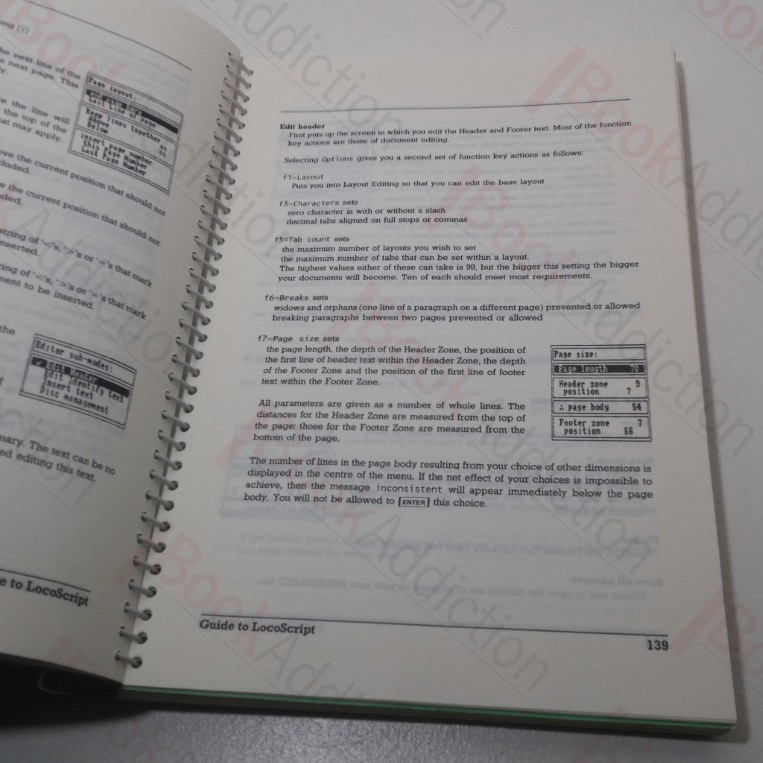 he next line of the
e next page. This
Page layout:
Last line of page
Keep lines together
Above
Below
insert page number
this Page Number
Last Page Number
e the line will
the top of the
at may apply.
ove the current position that should not
luded.
w the current position that should not
ded.
string of '<'s, '>'s or '='s that mark
nserted.
ring of '<'s, '>'s or '='s that mark
ment to be inserted.
the
Editor sub-modes:
✓ Edit Header
Edit identity text
Insert text
Disc management
mary. The text can be no
ed editing this text.
e to LocoScript
Edit header
First puts up the screen in which you edit the Header and Footer text. Most of the function
key actions are those of document editing.
Selecting Options gives you a second set of function key actions as follows:
f1=Layout
Puts you into Layout Editing so that you can edit the base layout
f3=Characters sets
zero character is with or without a slash
decimal tabs aligned on full stops or commas
f5=Tab count sets
the maximum number of layouts you wish to set
the maximum number of tabs that can be set within a layout.
The highest values either of these can take is 99, but the bigger this setting the bigger
your documents will become. Ten of each should meet most requirements.
f6=Breaks sets
widows and orphans (one line of a paragraph on a different page) prevented or allowed
breaking paragraphs between two pages prevented or allowed
f7=Page size sets
the page length, the depth of the Header Zone, the position of
the first line of header text within the Header Zone, the depth
of the Footer Zone and the position of the first line of footer
text within the Footer Zone.
All parameters are given as a number of whole lines. The
distances for the Header Zone are measured from the top of
the page; those for the Footer Zone are measured from the
bottom of the page.
Page size:
Page length 70
Header zone 9
position 7
∴ page body 54
Footer zone 7
position 66
The number of lines in the page body resulting from your choice of other dimensions is
displayed in the centre of the menu. If the net effect of your choices is impossible to
achieve, then the message inconsistent will appear immediately below the page
body. You will not be allowed to [ENTER] this choice.
Guide to LocoScript
139
iBookAddiction